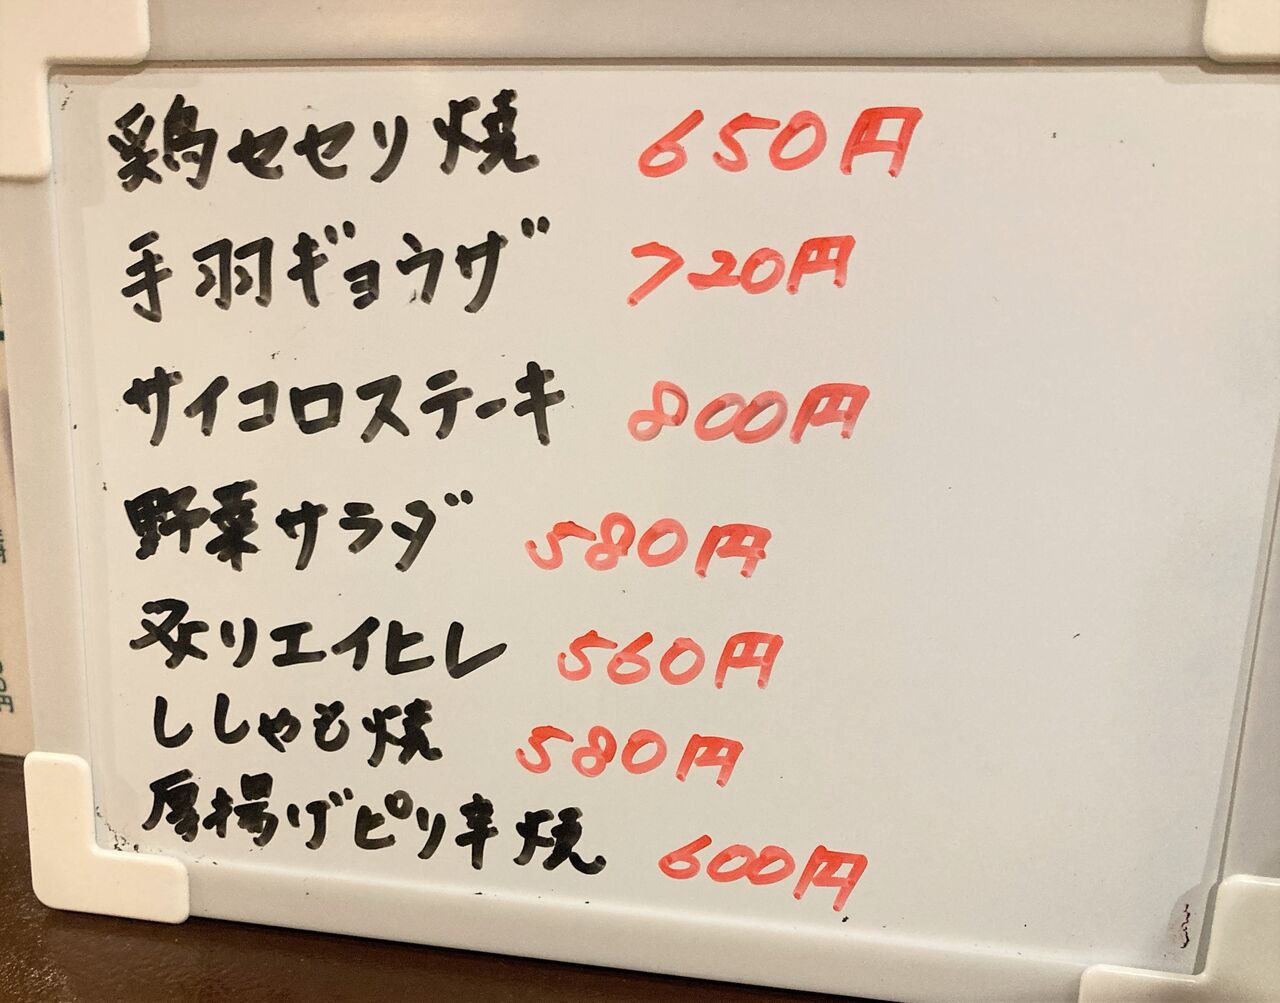 鶏セセリ焼 650円
手羽ギョウザ 720円
サイコロステーキ 800円
野菜サラダ 580円
炙リエイヒレ 560円
ししゃも焼 580円
厚揚げピリ辛焼 600円